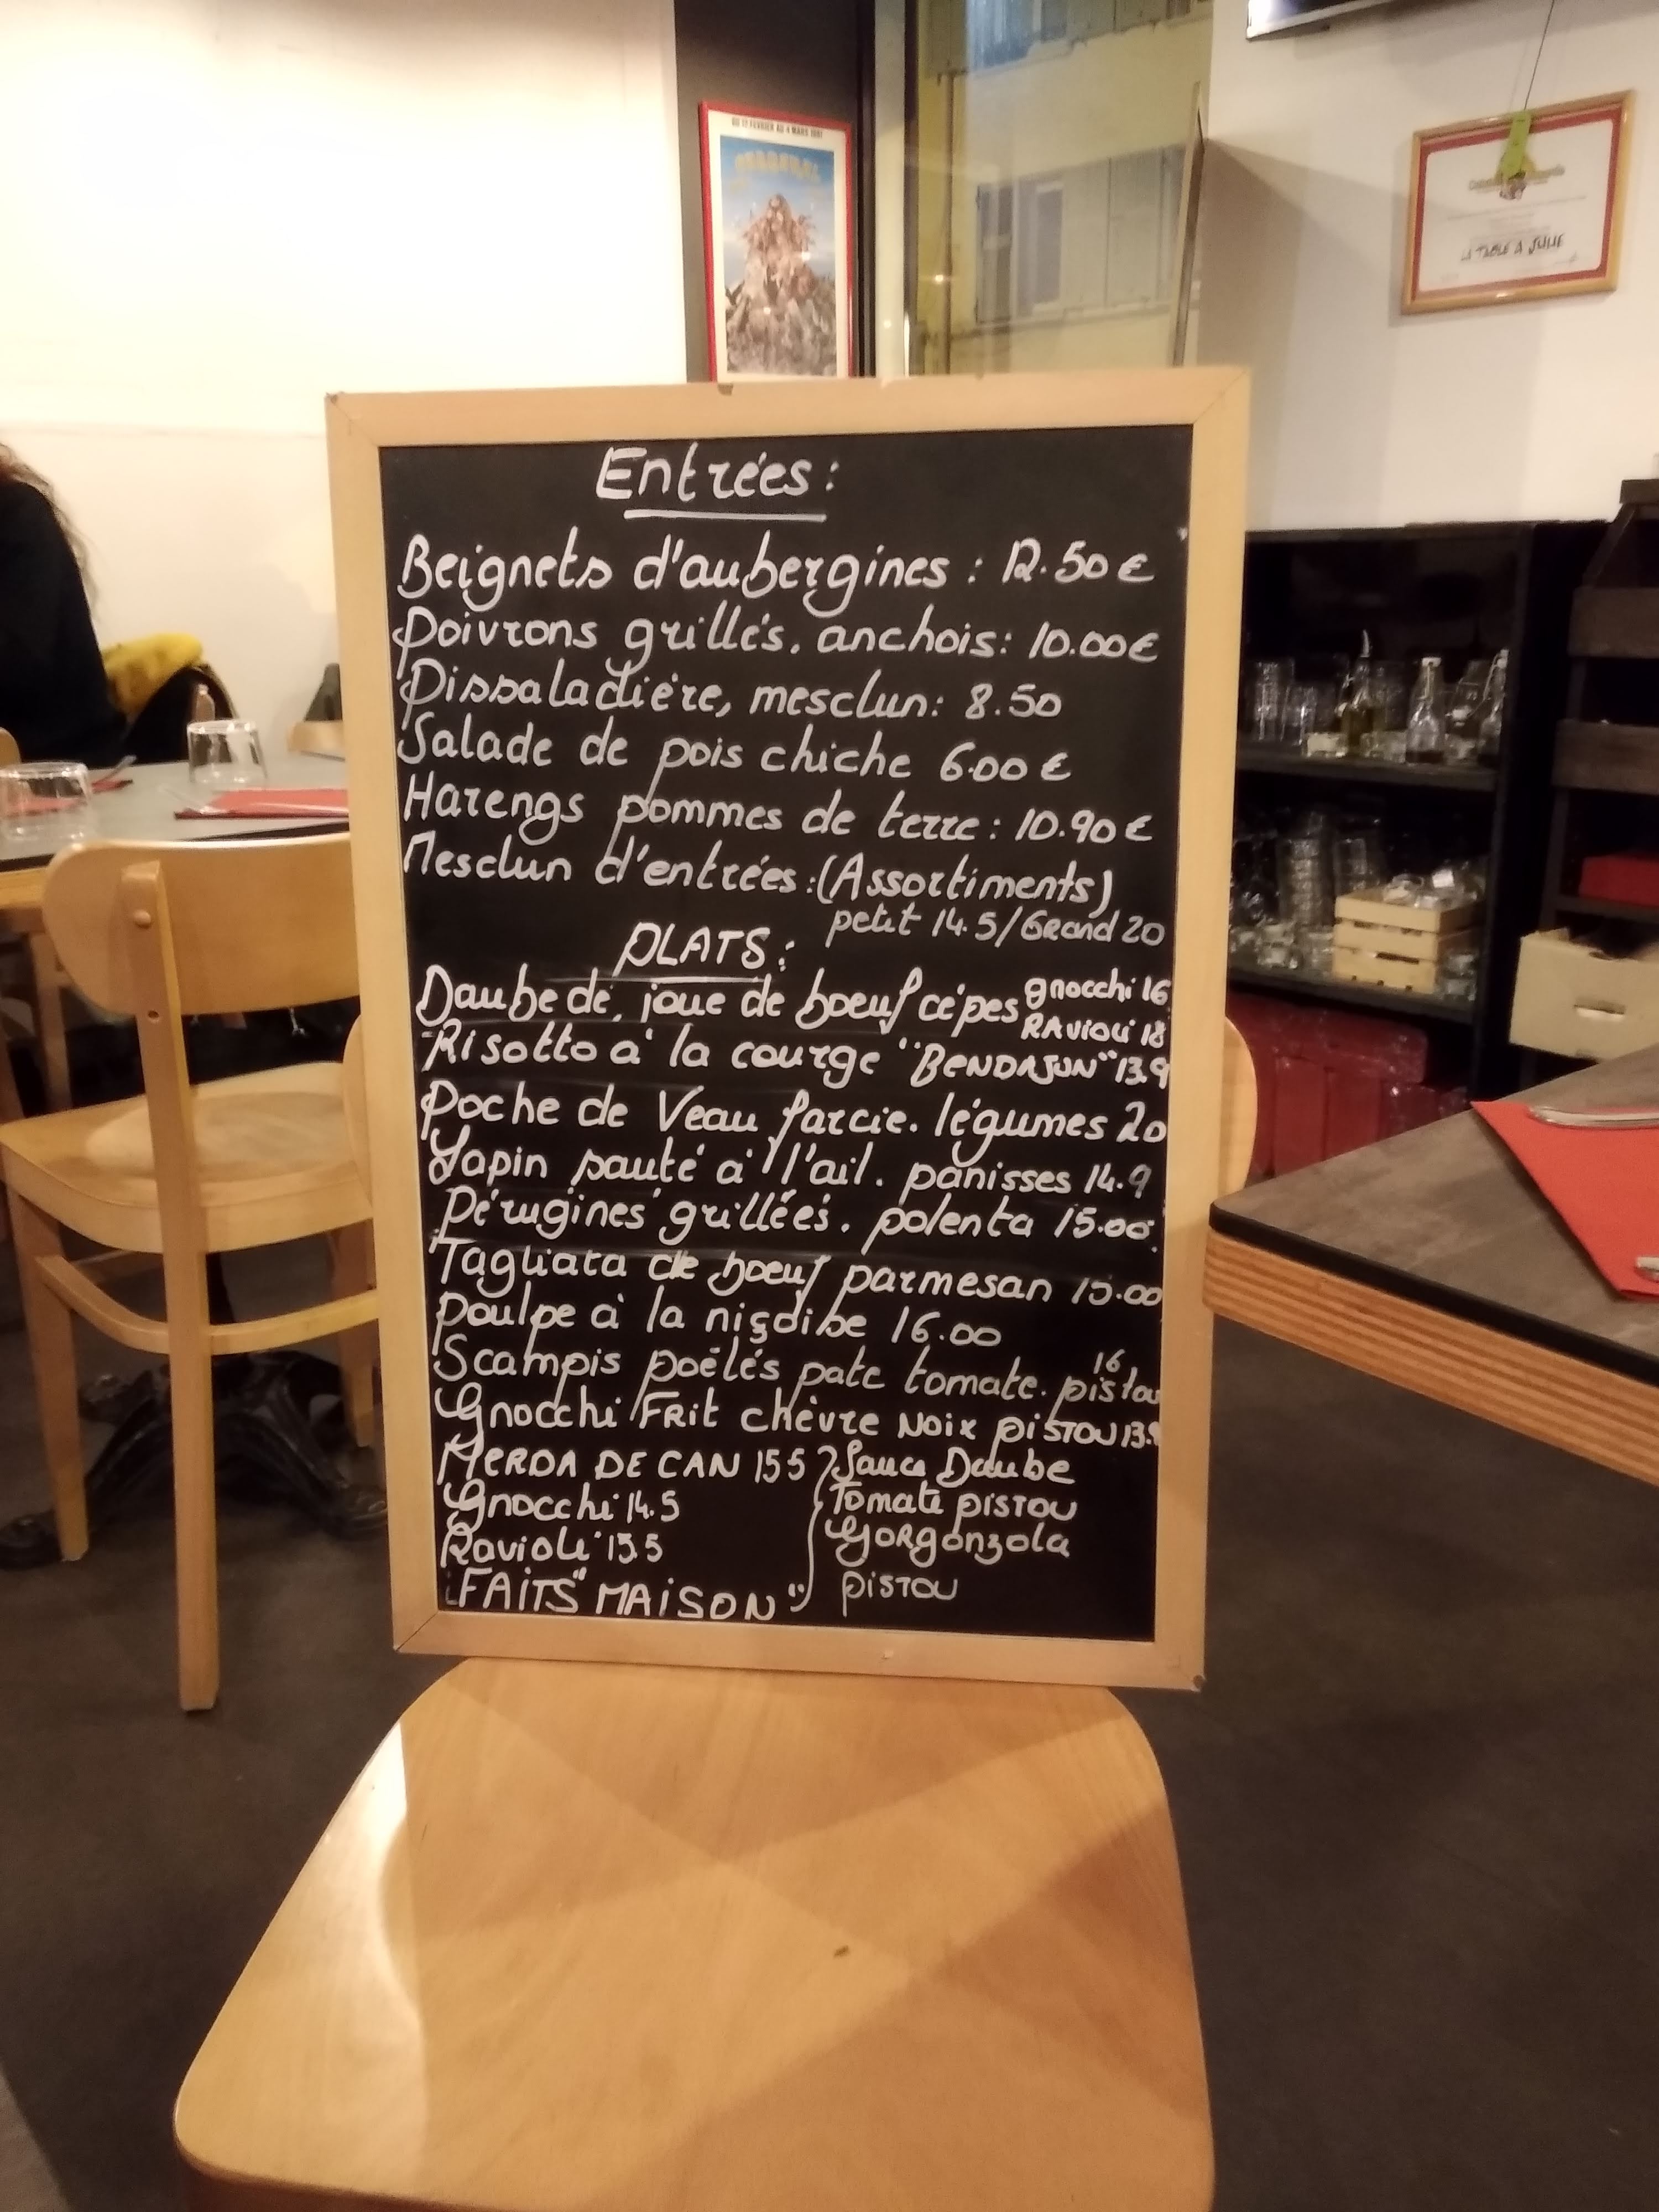 DU 12 FEVRIER AU 4 MARS
LA TABLE A JULIE
Entrées:
Beignets d'aubergines : 12.50 €
Poivrons grillés, anchois: 10.00€
Pissaladière, mesclun: 8.50
Salade de pois chiche 6.00 €
Harengs pommes de terre: 10.90 €
Mesclun d'entrées:(Assortiments)
petit 14.5/Grand 20
PLATS:
Daube de, joue de boeuf cépes gnocchi 16
RAVioli 18
Risotto à la courge "BENDAJUN" 13.9
Poche de Veau farcie. légumes 20
Lapin sauté à l'ail. panisses 14.9
Pérugines grillées. polenta 15.00
Tagliata de boeuf parmesan 15.00
Poulpe à la 16.00
Scampis poëlés pate tomate. pistou 16
Gnocchi FRit chèvre Noix PISTOU 13.9
MERDA DE CAN 15 5 Sauce Daube
Gnocchi 14.5 Tomate PISTOU
Ravioli 15.5 GORgonzola
"FAITS" MAISON" PISTOU